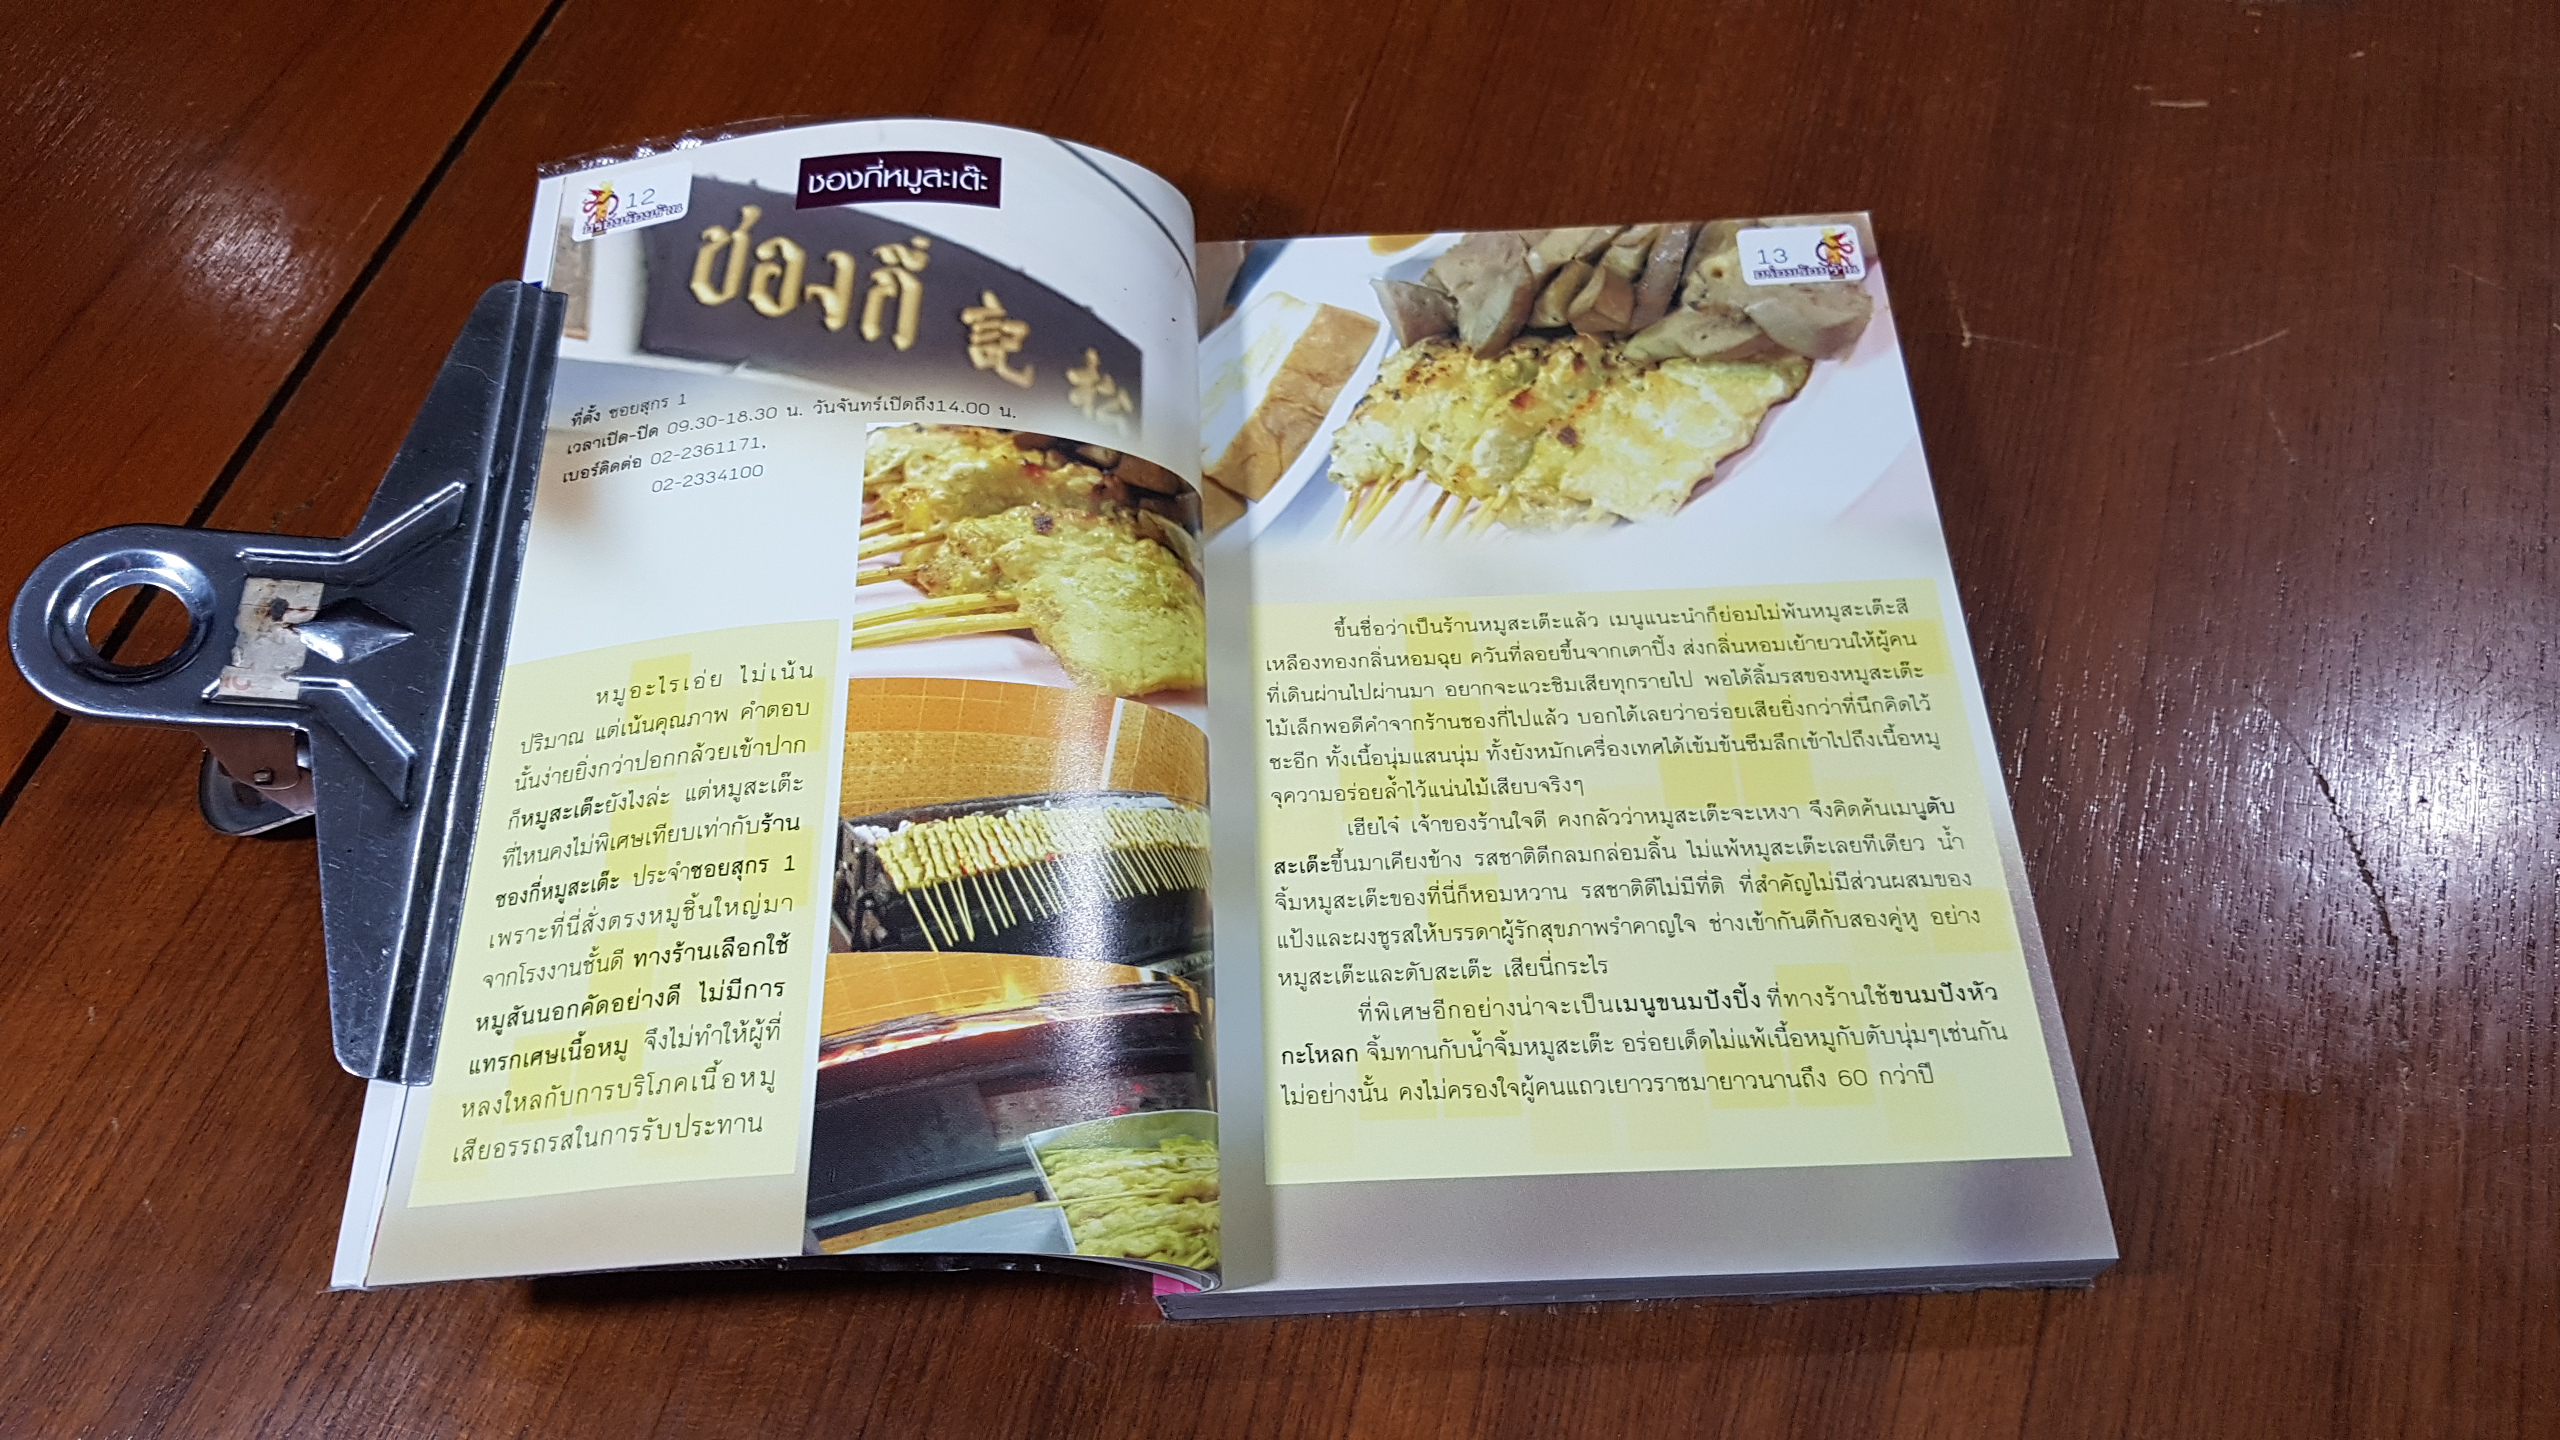 12
อร่อยร้อยร้าน
ชองกี่หมูสะเต๊ะ
ช่องกี่ 記 松
ที่ตั้ง ซอยสุกร 1
เวลาเปิด-ปิด 09.30-18.30 น. วันจันทร์เปิดถึง14.00 น.
เบอร์ติดต่อ 02-2361171,
02-2334100
หมูอะไรเอ่ย ไม่เน้น
ปริมาณ แต่เน้นคุณภาพ คำตอบ
นั้นง่ายยิ่งกว่าปอกกล้วยเข้าปาก
ก็หมูสะเต๊ะยังไงล่ะ แต่หมูสะเต๊ะ
ที่ไหนคงไม่พิเศษเทียบเท่ากับร้าน
ชองกี่หมูสะเต๊ะ ประจำซอยสุกร 1
เพราะที่นี่สั่งตรงหมูชิ้นใหญ่มา
จากโรงงานชั้นดี ทางร้านเลือกใช้
หมูสันนอกคัดอย่างดี ไม่มีการ
แทรกเศษเนื้อหมู จึงไม่ทำให้ผู้ที่
หลงใหลกับการบริโภคเนื้อหมู
เสียอรรถรสในการรับประทาน
13
อร่อยร้อยร้าน
ขึ้นชื่อว่าเป็นร้านหมูสะเต๊ะแล้ว เมนูแนะนำก็ย่อมไม่พ้นหมูสะเต๊ะสี
เหลืองทองกลิ่นหอมฉุย ควันที่ลอยขึ้นจากเตาปิ้ง ส่งกลิ่นหอมเย้ายวนให้ผู้คน
ที่เดินผ่านไปผ่านมา อยากจะแวะชิมเสียทุกรายไป พอได้ลิ้มรสของหมูสะเต๊ะ
ไม้เล็กพอดีคำจากร้านชองกี่ไปแล้ว บอกได้เลยว่าอร่อยเสียยิ่งกว่าที่นึกคิดไว้
ซะอีก ทั้งเนื้อนุ่มแสนนุ่ม ทั้งยังหมักเครื่องเทศได้เข้มข้นซึมลึกเข้าไปถึงเนื้อหมู
จุความอร่อยล้ำไว้แน่นไม้เสียบจริงๆ
เฮียไจ๋ เจ้าของร้านใจดี คงกลัวว่าหมูสะเต๊ะจะเหงา จึงคิดค้นเมนูตับ
สะเต๊ะขึ้นมาเคียงข้าง รสชาติดีกลมกล่อมลิ้น ไม่แพ้หมูสะเต๊ะเลยทีเดียว น้ำ
จิ้มหมูสะเต๊ะของที่นี่ก็หอมหวาน รสชาติดีไม่มีที่ติ ที่สำคัญไม่มีส่วนผสมของ
แป้งและผงชูรสให้บรรดาผู้รักสุขภาพรำคาญใจ ช่างเข้ากันดีกับสองคู่หู อย่าง
หมูสะเต๊ะและตับสะเต๊ะ เสียนี่กระไร
ที่พิเศษอีกอย่างน่าจะเป็นเมนูขนมปังปิ้ง ที่ทางร้านใช้ขนมปังหัว
กะโหลก จิ้มทานกับน้ำจิ้มหมูสะเต๊ะ อร่อยเด็ดไม่แพ้เนื้อหมูกับตับนุ่มๆเช่นกัน
ไม่อย่างนั้น คงไม่ครองใจผู้คนแถวเยาวราชมายาวนานถึง 60 กว่าปี